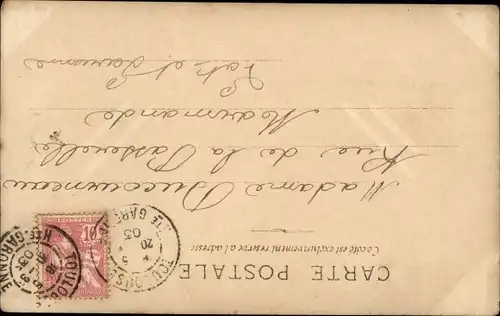 CARTE POSTALE
Ce côté est exclusivement réservé à l'adresse
Madame Ducourneau
Rue de la Passerelle
Marmande
Lot et Garonne
POSTES
10
TOULOUSE
HTE GARONNE
TOULOUSE
HTE GARONNE
20
03